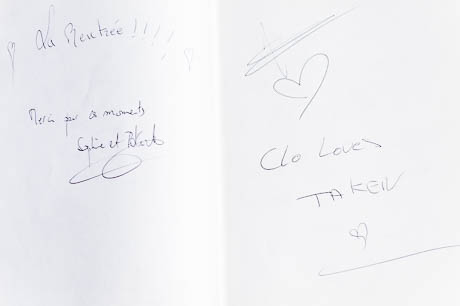 La Rentrée !!!!
Merci pour ces moments
Sophie et
Clo Loves
TAKEIV